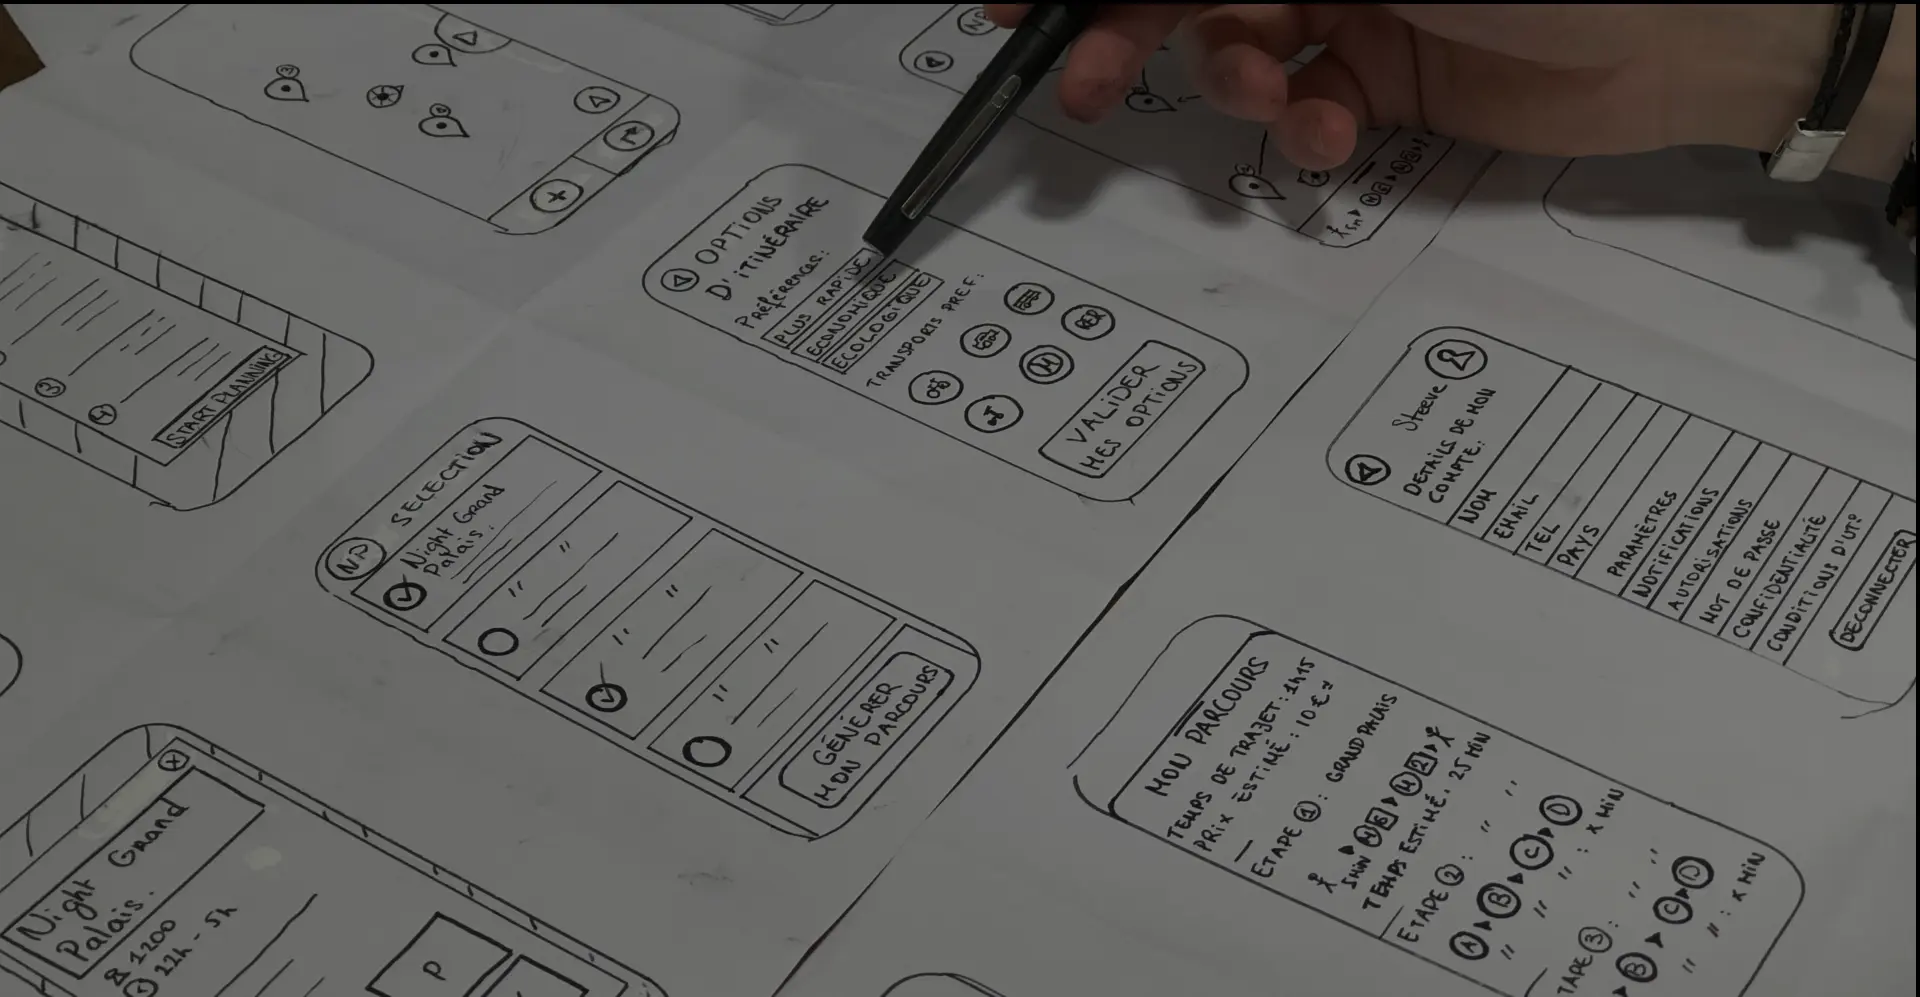 OPTIONS
D'ITINÉRAIRE
PRÉFÉRENCES:
PLUS RAPIDE
ECONOMIQUE
ECOLOGIQUE
TRANSPORTS PREF:
RER
M
VALIDER
MES OPTIONS
3
4
START PLANNING
NP
SELECTION
Night Grand
Palais:
"
"
"
"
"
"
GÉNÉRER
MON PARCOURS
Steeve
DETAILS DE MON
COMPTE:
NOM
EMAIL
TEL
PAYS
PARAMÈTRES
NOTIFICATIONS
AUTORISATIONS
MOT DE PASSE
CONFIDENTIALITÉ
CONDITIONS D'UT°
DECONNECTER
MON PARCOURS
TEMPS DE TRAJET: 1h15
PRIX ESTIMÉ: 10€
ETAPE 1: GRAND PALAIS
5MIN M 2
TEMPS ESTIMÉ. 25 MIN
ETAPE 2: " "
A B C D
" " " : X MIN
TAPE 3: " "
B C D
" " : X MIN
Night Grand
Palais:
1200
22h - 5h
P